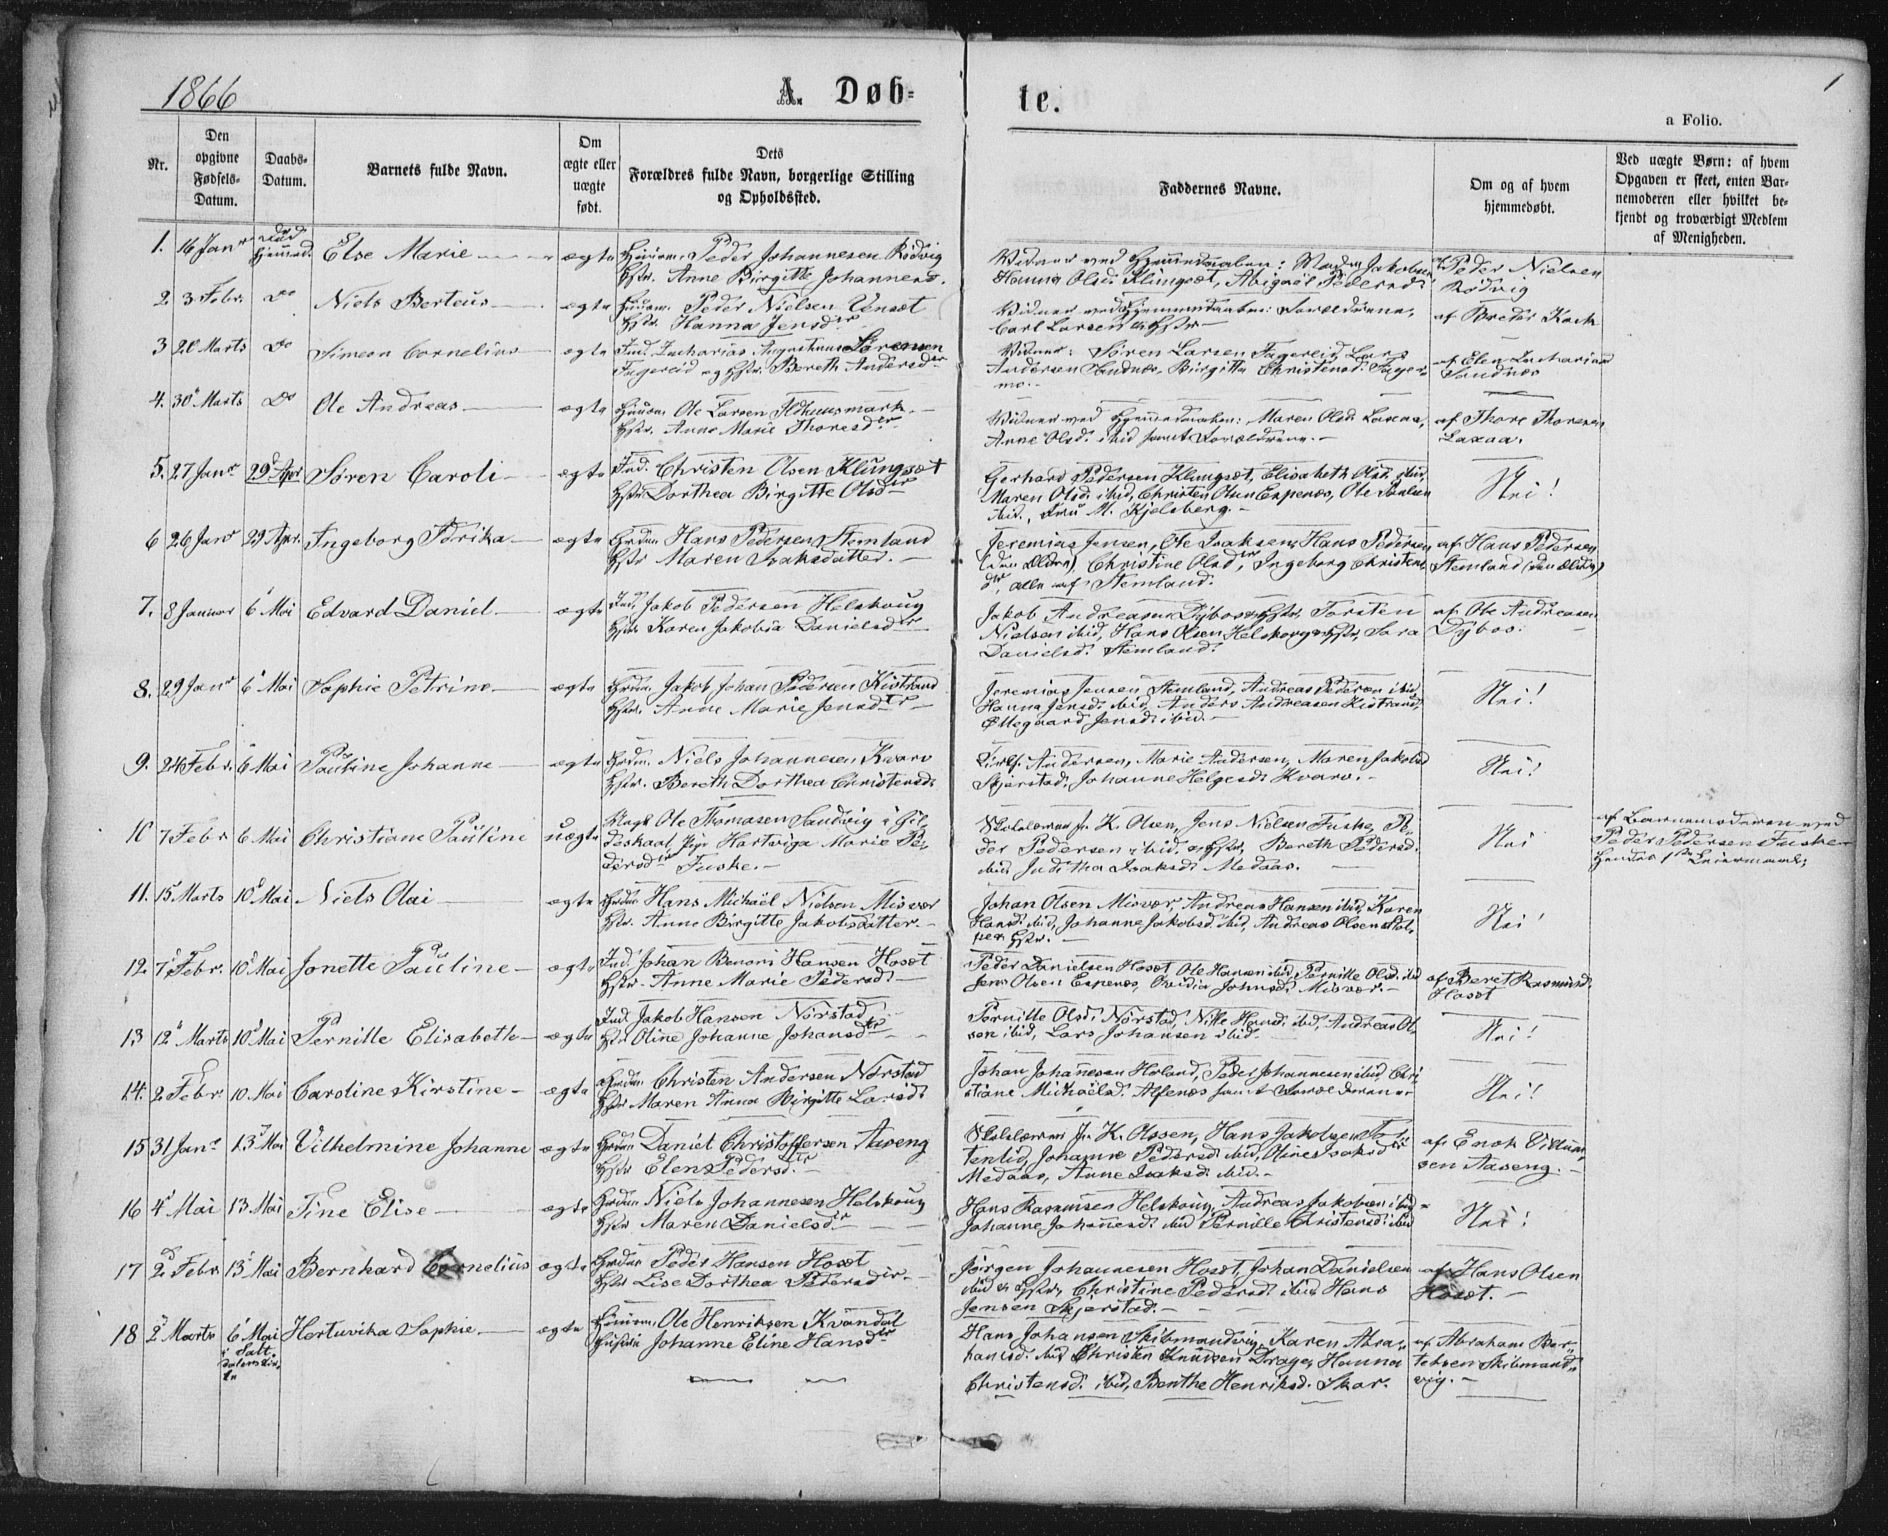 1866
A. Døb-
te.
1
a Folio.
Nr.
Den opgivne Fødsels-Datum.
Daabs-Datum.
Barnets fulde Navn.
Om ægte eller uægte født.
Dets Forældres fulde Navn, borgerlige Stilling og Opholdssted.
Faddernes Navne.
Om og af hvem hjemmedøbt.
Ved uægte Børn: af hvem Opgaven er skeet, enten Barnemoderen eller hvilket bekjendt og troværdigt Medlem af Menigheden.
1. 16 Janr død hjemmed. Else Marie ægte Peder Johannesen Rødvig
Hstr. Anne Birgitte Johannesd.
Vidner ved Hjemmedaaben: Jakobsen
Hanna Olsd. Klungsæt, Abigaël Pedersd.
af Peder Nielsen
Rødvig
2. 3 Febr. Do Niels Berteus ægte Huusm. Peder Nielsen Venset
Hstr. Hanna Jensdr
Vidner ved Hjemmedaaben: Forældrene,
Carl Larsen & Hstr
af Breder Koch
3 20 Marts Do Simeon Cornelius ægte Ind. Zacharias Augustinus Sørensen
Fagereid og Hstr. Bereth Andersdr
Vidner: Søren Larsen Fagereid, Lars
Andersen Sandnæs, Birgitte Christensd. Fager-
mo.
af Elen Zachariasd
Sandnæs
4. 30 Marts Do Ole Andreas ægte Huusm. Ole Larsen Ildhuusmark
Hstr. Anne Marie Thoresdr
Vidner ved Hjemmedaaben: Maren Olsd. Laxaa,
Anne Olsd. ibid samt Forældrene.
af Thore Thoresen
Laxaa.
5. 27 Janr 29 Apr Søren Caroli ægte Ind. Christen Olsen Klungset
Hstr Dorthea Birgitte Olsdr
Gerhard Pedersen Klungset, Elisabeth Olsd. ibid,
Maren Olsd. ibid, Christen Olsen Espenæs, Ole Paulsen
ibid., Fru M. Kjelsberg.
Nei!
6 26 Janr 29 Apr. Ingeborg Fdrika ægte Grdm. Hans Pedersen Stemland
Hstr Maren Isaksdatter.
Jeremias Jensen, Ole Isaksen, Hans Pedersen
(den Ældre), Christine Olsdr, Ingeborg Christens
dr, alle af Stemland.
af Hans Pedersen
Stemland (den ældre)
7. 8 Januar 6 Mai Edvard Daniel ægte Ind. Jakob Pedersen Helskoug
Hstr Karen Jakobia Danielsdr
Jakob Andreasen Dybos & Hstr, Torsten
Nielsen ibid, Hans Olsen Helskoug & Hstr, Sara
Danielsd. Stemland.
af Ole Andreasen
Dybos.
8. 29 Janr 6 Mai Sophie Petrine ægte Grdm. Jakob Johan Pedersen Kistrand
Hstr. Anne Marie Jensdtr
Jeremias Jensen Stemland, Andreas Pedersen ibid
Hanna Jensd. ibid, Anders Andreasen Kistrand,
Ellegaard Jensd. ibid.
Nei!
9. 24 Febr. 6 Mai Pauline Johanne ægte Grdm. Niels Johannesen Kvarv
Hstr. Bereth Dorthea Christensd.
Andersen, Marie Andersen, Maren Jakobsd
Skjerstad, Johanne Helgesd. Kvarv.
Nei!
10 7 Febr 6 Mai Christiane Pauline uægte Ole Thomasen Sandvig i Gil-
deskaal, Pige Hartviga Marie Pe-
dersdr Fuske.
Skolelærer Jr. K. Olsen, Jens Nielsen Fuske, Pe-
der Pedersen ibid & Hstr, Bereth Pedersd.
ibid Juditha Isaksd. Medaas.
Nei
af Barnemoderen med
Peder Pedersen Fuske
Hendes 1ste Leiermaal.
11. 15 Marts 10 Mai Niels Olai ægte Grdm Hans Michaël Nielsen Misvær
Hstr. Anne Birgitte Jakobsdatter.
Johan Olsen Misvær, Andreas Hansen ibid, Karen
Hansd. ibid, Johanne Jakobsd. ibid, Andreas Olsen Stol-
pen Hstr.
Nei!
12. 7 Febr. 10 Mai Jonette Pauline ægte Ind. Johan Benoni Hansen Hoset
Hstr. Anne Marie Pedersd.
Peder Danielsen Hosæt, Ole Hansen ibid, Pernille Olsd. ibid
Jens Olsen Espenæs, Ovidia Johnsd. Misvær.
af Beret Rasmusd.
Hosæt
13 12 Marts 10 Mai Pernille Elisabeth ægte Ind. Jakob Hansen Nørstad
Hstr Oline Johanne Johansdr
Pernille Olsd. Nørstad, Nille Hansd. ibid, Andreas Ol-
sen ibid, Lars Johansen ibid.
Nei!
14. 2 Febr. 10 Mai Caroline Kirstine ægte Grdm Christen Andersen Nørstad
Hstr Maren Anna Birgitte Larsd.
Johan Johannesen Høland, Peder Johannesen ibid, Chri-
stiane Michaëlsd. Alfenæs samt Forældrene
Nei!
15 31 Janr 13 Mai Vilhelmine Johanne ægte Grdm Daniel Christoffersen Aaseng
Hstr Elen Pedersdtr.
Skolelærer Jr. K. Olssen, Hans Jakobsen
Johanne Pedersd. ibid, Oline Isaksdr
Medaas, Anne Isaksd. ibid.
af Enok Villum-
sen Aaseng.
16 4 Mai 13 Mai Tine Elise ægte Grdm Niels Johannesen Helskoug
Hstr Maren Danielsdr
Hans Rasmusen Helskoug, Andreas Jakobsen ibid
Johanne Johannesd. ibid Pernille Christensd. ibid
Nei!
17 2 Febr 13 Mai Bernhard Cornelius ægte Grdm Peder Hansen Hosæt
Hstr Lise Dorthea Petersdr.
Jørgen Johannesen Hosæt, Johan Danielsen
ibid & Hstr, Christine Pedersd. ibid Hans
Jensen Skjerstad.
af Hans Olsen
Hosæt.
18 2 Marts 6 Mai i Saltdalens Kirke Hertuvika Sophie ægte Huusm. Ole Henriksen Kvandal
Hustru Johanne Eline Hansdr
Hans Johansen Skibmandvig, Karen Abra-
hamsd. ibid Christen Knudsen Drage, Hanna
Christensd. ibid, Benthe Henriksd. Skar.
af Abraham Ber-
telsen Skibmand-
vig.